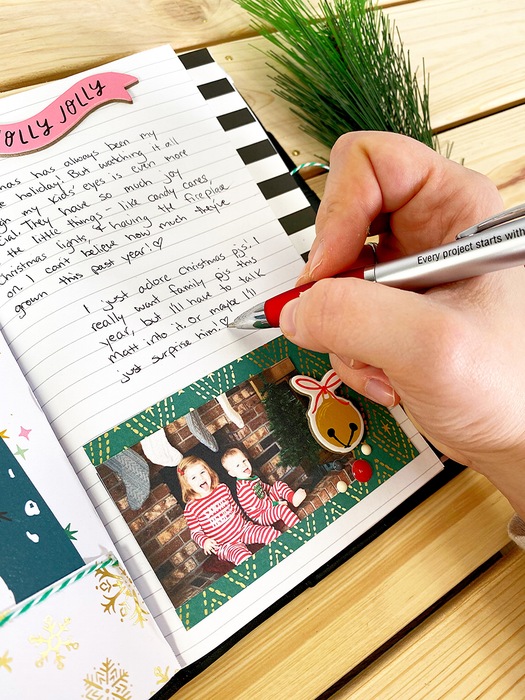 OLLY JOLLY
mas has always been my
e holiday! But watching it all
gh my kids' eyes is even more
cial. They have so much joy
the little things - like candy canes,
Christmas lights, & having the fireplace
on. I can't believe how much they've
grown this past year!♡
I just adore Christmas pjs. I
really want family pjs this
year, but I'll have to talk
matt into it. Or maybe I'll
just surprise him!♡
Every project starts with